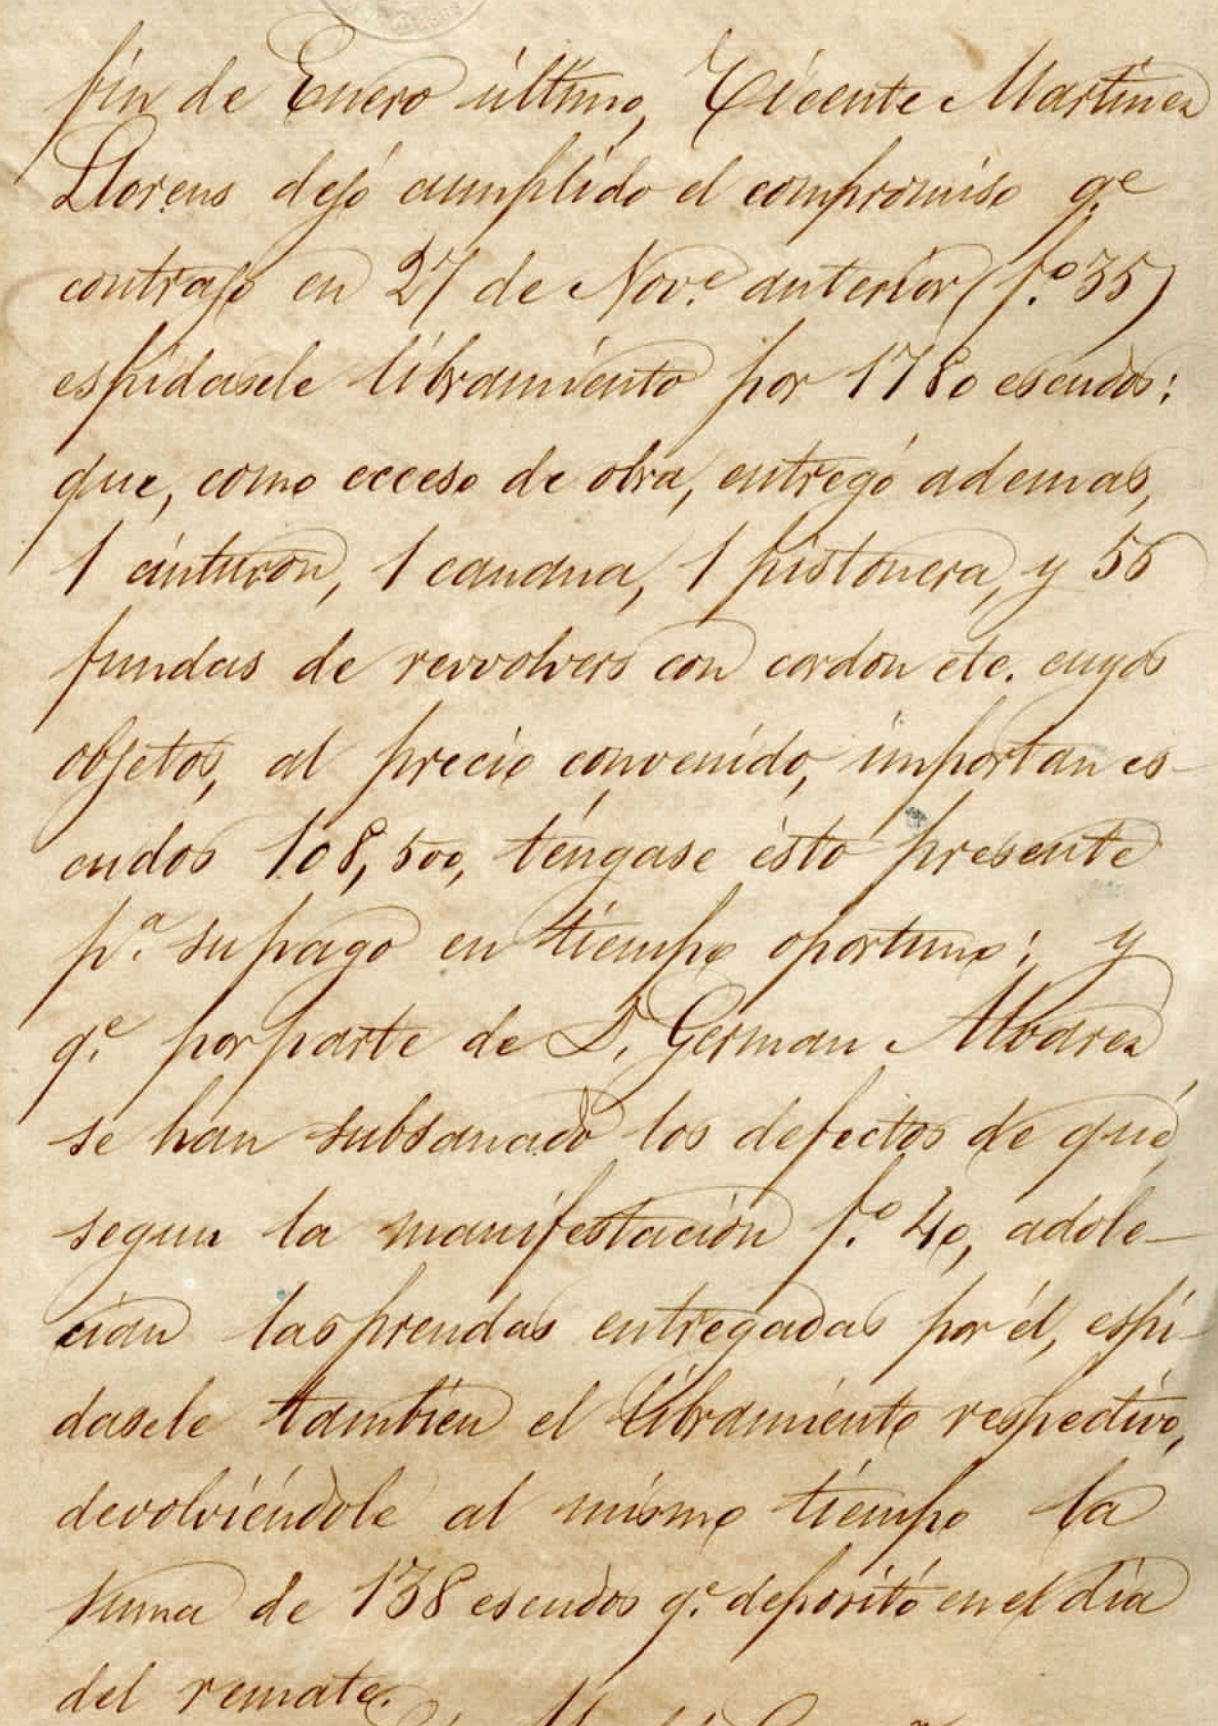 fin de Enero último, Vicente Martinez
Llorens dejó cumplido el compromiso q.e
contrajo en 27 de Nov.e anterior (f.o 35)
espidasele libramiento por 1780 escudos:
que, como ecceso de obra, entregó ademas,
1 cinturon, 1 canana, 1 pistonera, y 56
fundas de revvolvers con cordon etc. cuyos
objetos, al precio convenido, importan es-
cudos 108,500, téngase ésto presente
p.a su pago en tiempo oportuno; y
q.e por parte de D. German Alvarez
se han subsanado los defectos de que,
segun la manifestacion f.o 40, adole-
cian las prendas entregadas por él, espi-
dasele tambien el libramiento respectivo,
devolviéndole al mismo tiempo la
suma de 138 escudos q.e depositó en el dia
del remate.